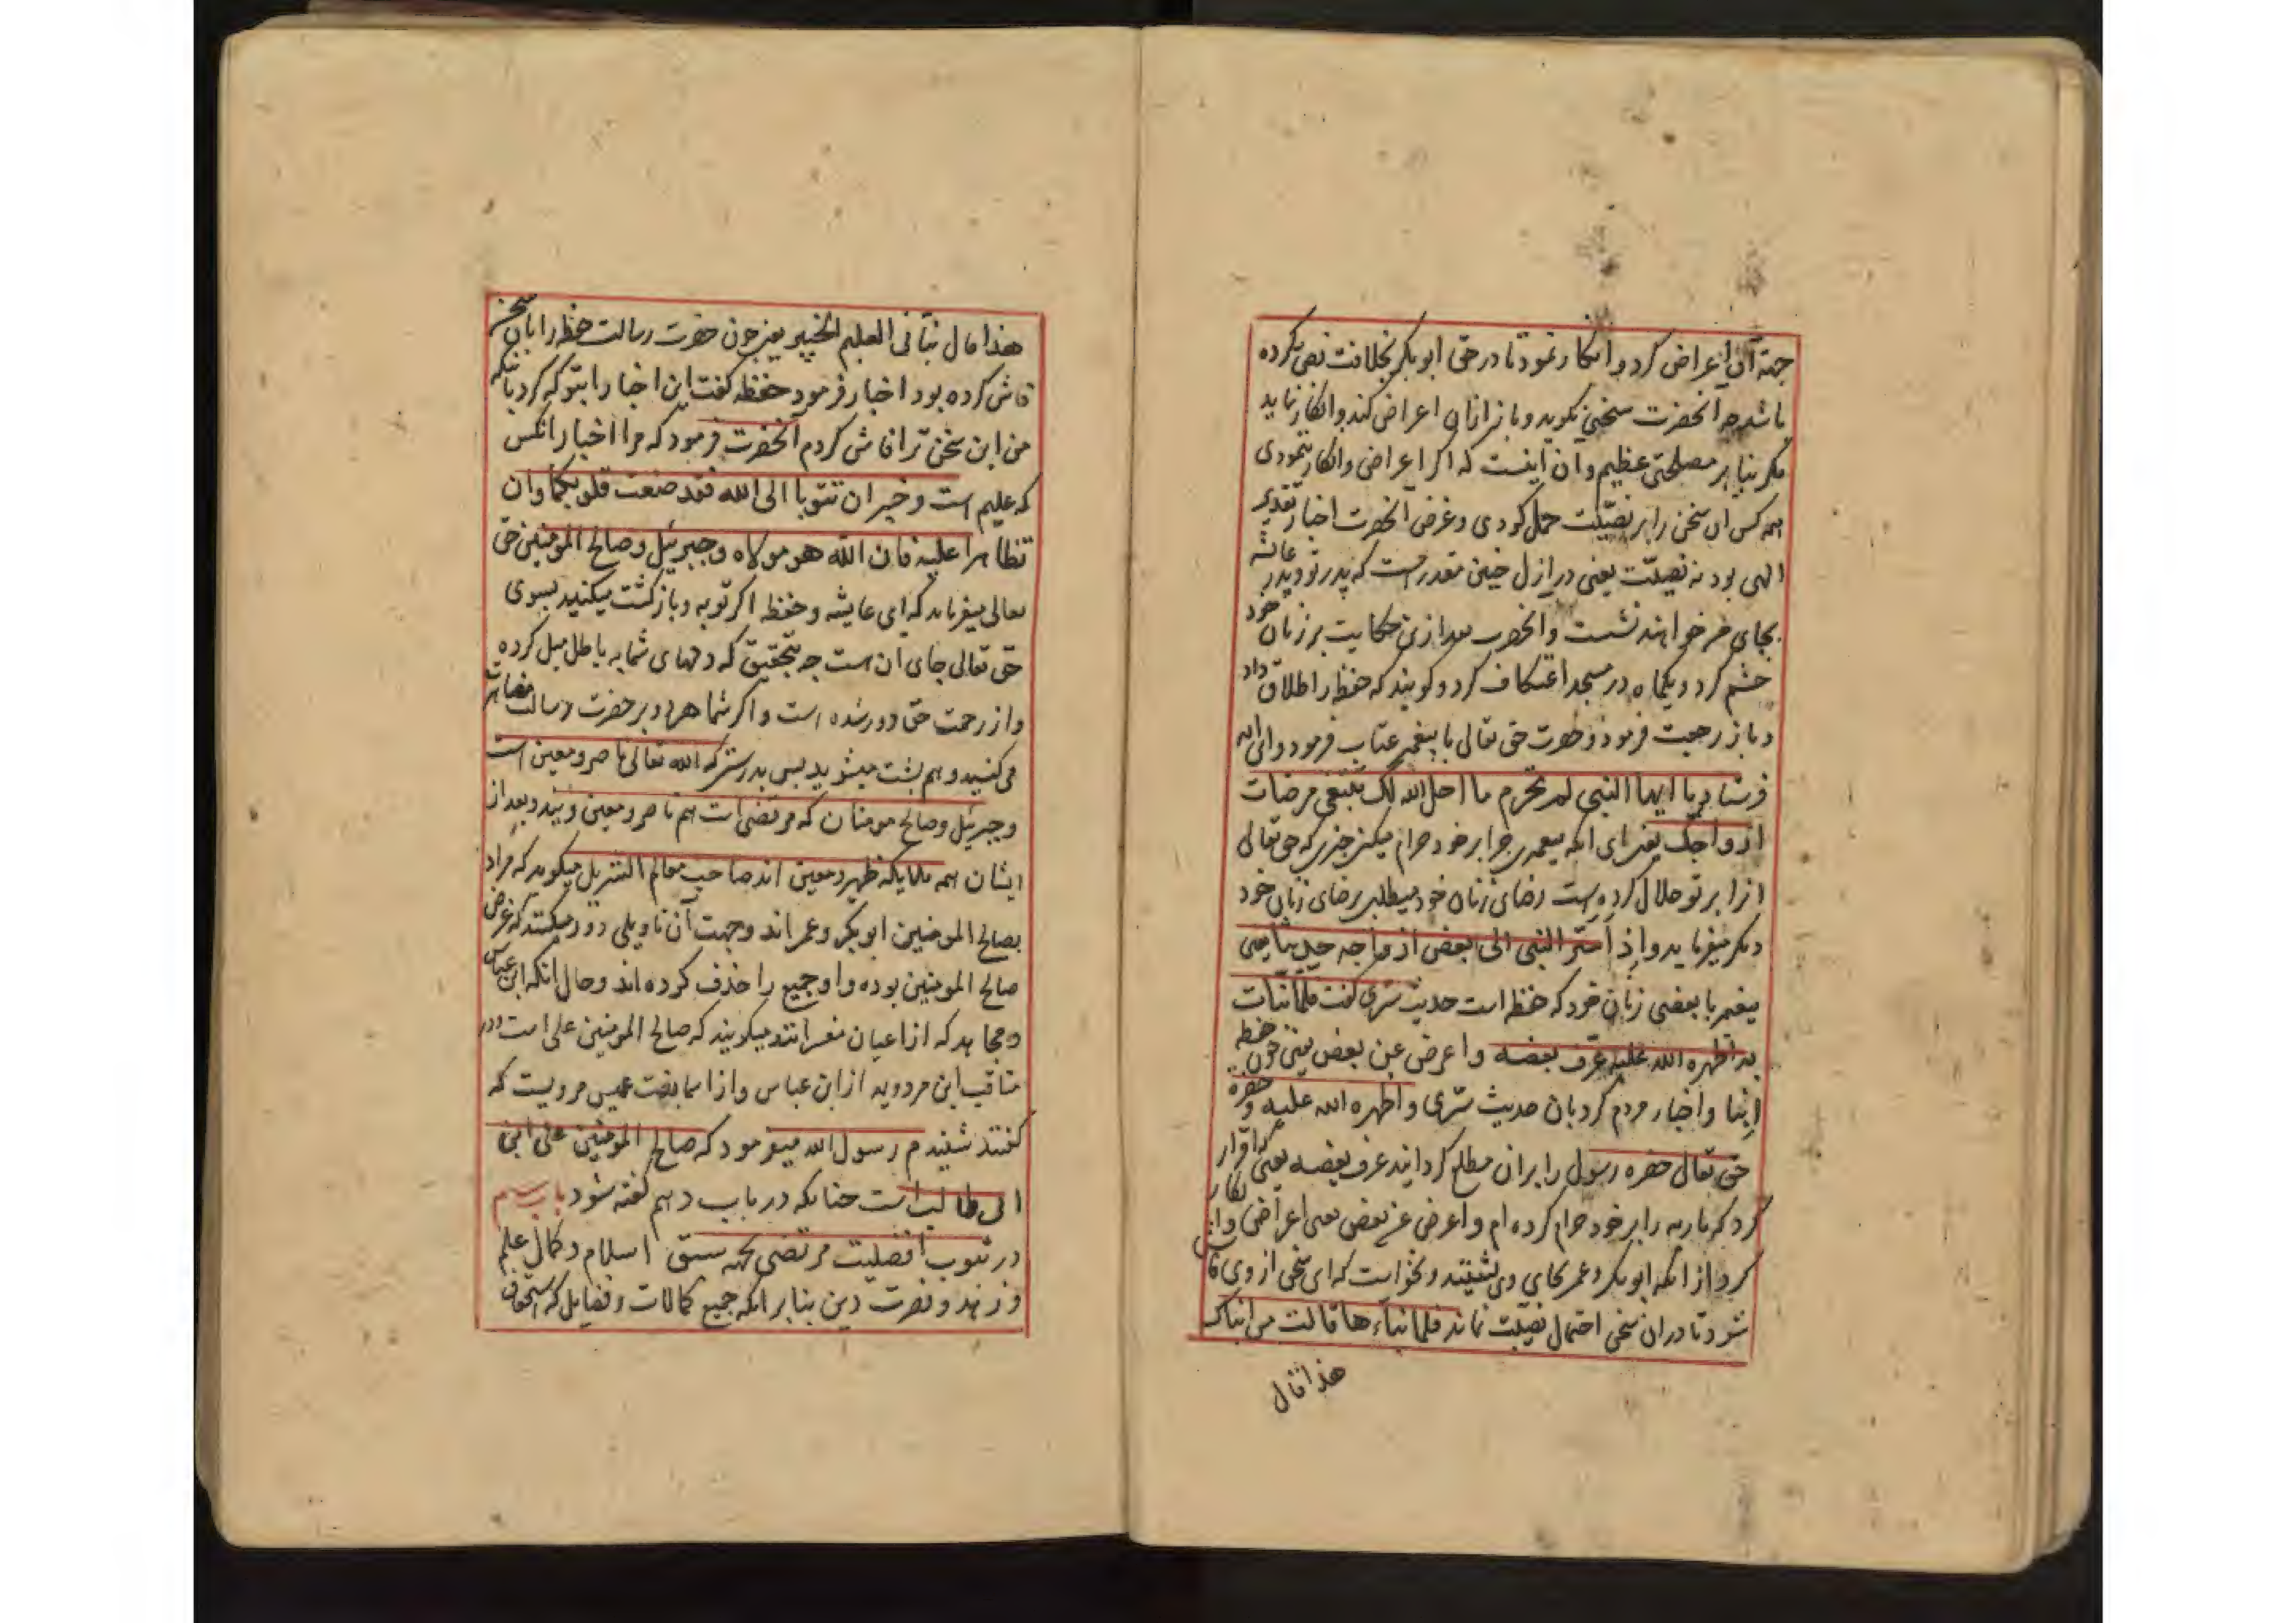 جهة آن اعراض کرد و انکار نمود تا در حق ابو بکر بخلافت نص نکرده
باشد چه آنحضرت سخنی نکوید و باز ازان اعراض کند و انکار نماید
مکر بنا بر مصلحتی عظیم و آن اینست که اکر اعراض و انکار ننمودی
همه کس ان سخن را بر فضیلت حمل کردی و غرض آنحضرت اخبار تقدیر
الهی بود نه فضیلت یعنی در ازل چنین مقدر است که پدر تو و پدر عایشه
بجای من خواهند نشست و انحضرت بعد ازین حکایت بر زنان خود
خشم کرد و یکماه در مسجد اعتکاف کرد و کویند که حفظه را طلاق داد
و باز رجعت فرمود و حضرت حق تعالی با پیغمبر عتاب فرمود و این ایه
فرستاد یا ایها النبی لم تحرم ما احل الله لک تبتغی مرضات
ازواجک یعنی ای پیغمبر چرا بر خود حرام میکنی چیزی که حق تعالی
انرا بر تو حلال کرده است رضای زنان خود میطلبی برضای زنان خود
دیکر میفرماید و اذ اسر النبی الی بعض ازواجه حدیثا یعنی
پیغمبر با بعضی زنان خود که حفظه است حدیث سری کفت فلما نبأت
به اظهره الله علیه عرف بعضه و اعرض عن بعض یعنی چون حفظه
انبا و اخبار مردم کرد بان حدیث سری و اظهره الله علیه و حضرة
حق تعالی حضرة رسول را بران مطلع کردانید عرف بعضه یعنی اقرار
کرد که ماریه را بر خود حرام کرده ام و اعرض عن بعض یعنی اعراض و انکار
کرد از انکه ابو بکر و عمر بجای وی نشینند و نخواست که این سخن از وی فاش
شود تا در ان سخن احتمال فضیلت نماند فلما نباءها قالت من انباک
هذا قال
هذا قال نبأنی العلیم الخبیر یعنی چون حضرت رسالت حفظه را بان سخن
فاش کرده بود اخبار فرمود حفظه کفت این اخبار را بتو که کرد بانکه
من این سخن ترا فاش کردم آنحضرت فرمود که مرا اخبار انکس
که علیم است و خبیر ان تتوبا الی الله فقد صغت قلوبکما و ان
تظاهرا علیه فان الله هو مولاه و جبریل و صالح المومنین حق
تعالی میفرماید که ای عایشه و حفظه اکر توبه و بازکشت میکنید بسوی
حق تعالی جای ان است چه بتحقیق که دلهای شما به باطل میل کرده
و از رحمت حق دور شده است و اکر شما هر دو بر حضرت رسالت مظاهرت
می کنید و هم پشت میشوید پس بدرستی که الله تعالی ناصر و معین است
و جبرئیل و صالح مومنان که مرتضی است هم ناصر و معین ویند و بعد از
ایشان همه ملایکه ظهیر و معین اند صاحب معالم التنزیل میکوید که مراد
بصالح المومنین ابو بکر و عمر اند و جهت آن تاویلی دور میکنند که غرض
صالح المومنین بوده و او جمیع را حذف کرده اند و حال انکه ابن عباس
و مجاهد که از اعیان مفسرانند میکویند که صالح المومنین علی است و در
مناقب ابن مردویه از ابن عباس و از اسما بنت عمیس مرویست که
کفتند شنیدم رسول الله میفرمود که صالح المومنین علی ابن
ابی طالب است چنانکه در باب دهم کفته شود باب سیم
در ثبوت افضلیت مرتضی بجهة سبق اسلام و کمال علم
و زهد و نصرت دین بنابر انکه جمیع کمالات و فضایل که استحقاق